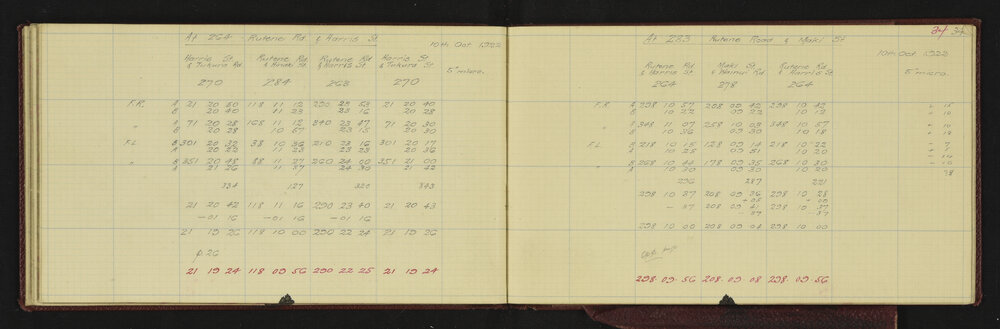 At 264 - Rutene Rd & Harris St
10th Oct 1922
Harris St Rutene Rd Rutene Rd Harris St
& Turkura Rd & Hinaki St & Harris St & Turkura St 5" micro.
270 284 268 270
F.R. A 21 20 50 118 11 12 290 23 53 21 20 40
B 20 40 11 23 23 16 20 28
" A 71 20 28 168 11 12 340 23 47 71 20 30
B 20 28 10 57 23 15 20 30
F.L. B 301 20 32 38 10 36 210 23 16 301 20 17
A 20 22 11 23 23 23 20 36
" B 351 20 48 48 11 27 260 24 00 351 21 00
A 21 26 11 37 24 30 21 42
334 127 320 343
21 20 42 118 11 16 290 23 40 21 20 43
-01 16 -01 16
21 19 26 118 10 00 290 22 24 21 19 26
p.26
21 19 24 118 09 56 290 22 25 21 19 24
34 34
At 283 Rutene Road & Maki St
10th Oct 1922
Rutene Rd Maki St Rutene Rd
& Harris St & Wainui Rd & Harris St 5" micro.
264 278 264
F.R. A 298 10 57 208 09 42 298 10 42 + 15
B 10 22 09 22 10 12 + 10
" A 348 11 07 258 10 03 348 10 57 + 10
B 10 36 09 30 10 18 + 18
F.L. B 218 10 15 128 09 14 218 10 22 - 7
A 10 25 09 51 10 20
" B 268 10 44 178 09 35 268 10 30
A 10 30 09 30 10 20 - 10
296 287 221
298 10 37 208 09 36 298 10 28
+ 05 + 09
- 37 208 09 41 298 10 37
- 37 - 37
298 10 00 208 09 04 298 10 00
298 09 56 208 09 08 298 09 56